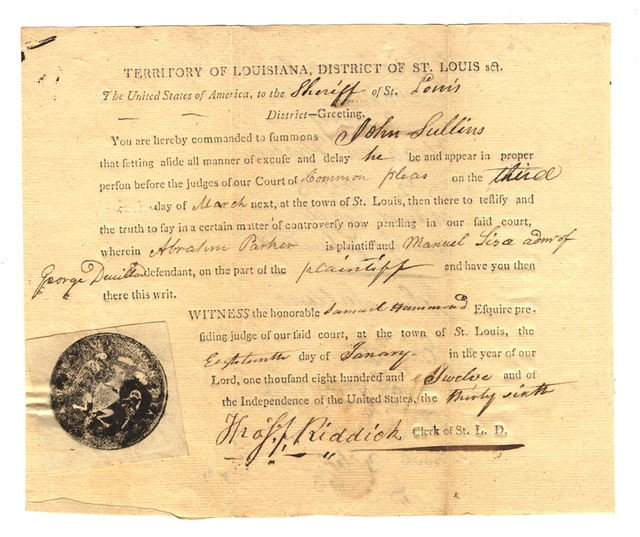 TERRITORY OF LOUISIANA, DISTRICT OF ST. LOUIS sct.
The United States of America, to the Sheriff of St. Louis
District—Greeting.
You are hereby commanded to summons John Sullins
that setting aside all manner of excuse and delay he be and appear in proper
person before the judges of our Court of Common pleas on the third
day of March next, at the town of St. Louis, then there to testify and
the truth to say in a certain matter of controversy now pending in our said court,
wherein Abrahm Parker is plaintiff and Manuel Lisa admr of
George defendant, on the part of the plaintiff and have you then
there this writ.
WITNESS the honorable Samuel Hammond Esquire pre-
siding judge of our said court, at the town of St. Louis, the
Eighteenth day of Janary in the year of our
Lord, one thousand eight hundred and Twelve and of
the Independence of the United States, the thirty sixth
Thos. F. Riddick Clerk of St. L. D.